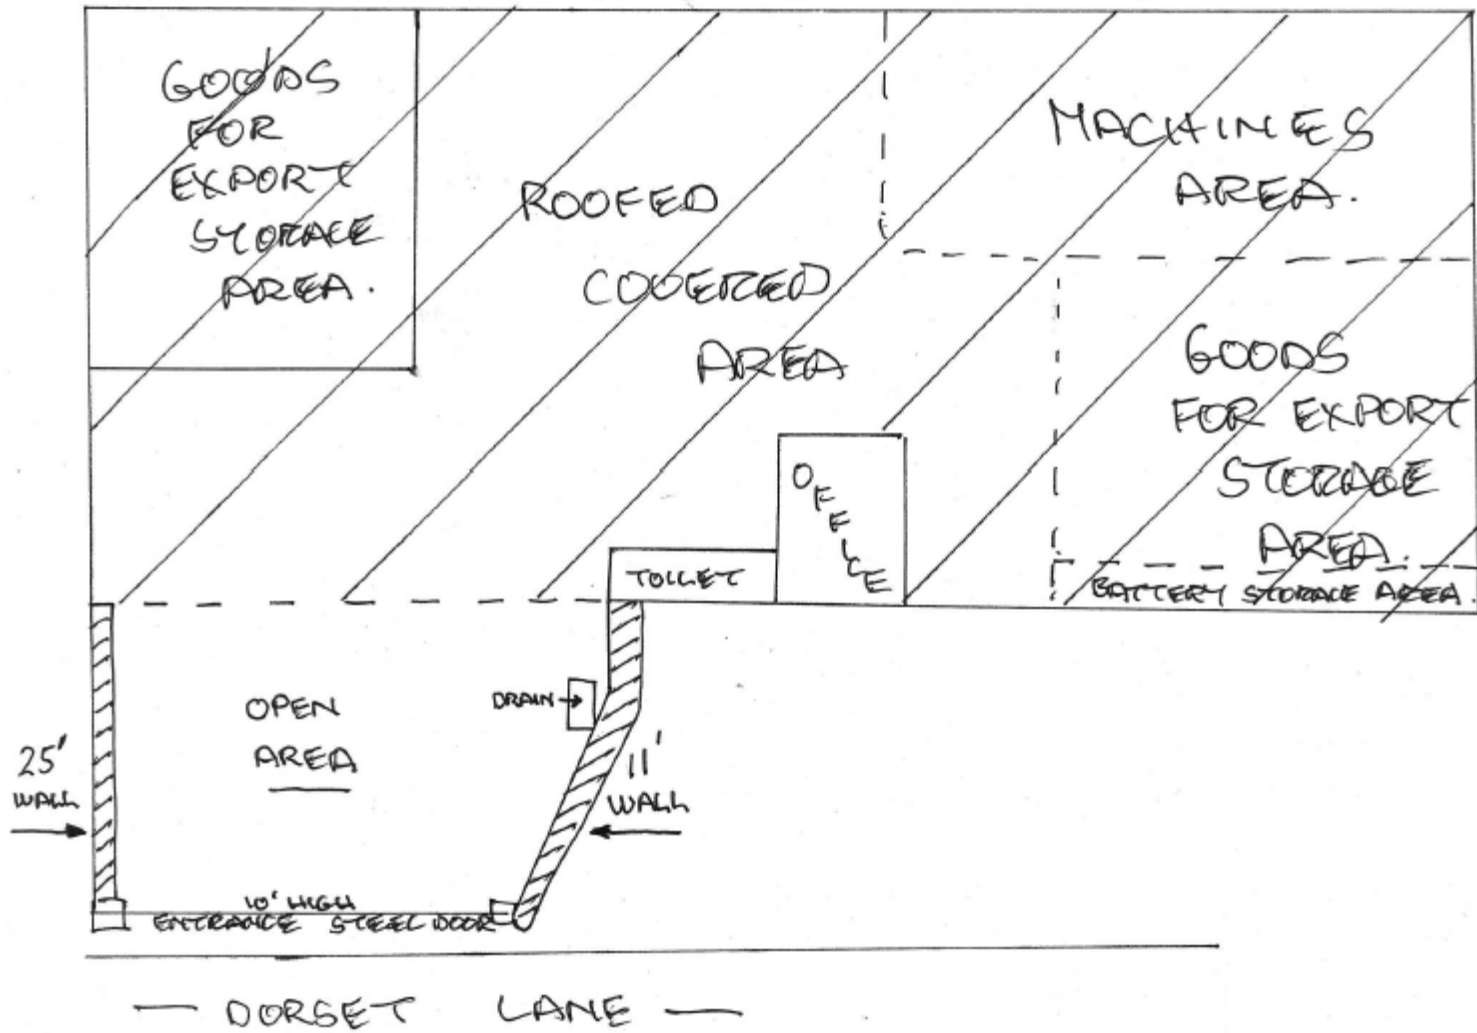 GOODS
FOR
EXPORT
STORAGE
AREA.
ROOFED
COVERED
AREA
MACHINES
AREA.
GOODS
FOR EXPORT
STORAGE
AREA.
BATTERY STORAGE AREA.
OFFICE
TOILET
OPEN
AREA
DRAIN
25'
WALL
11'
WALL
10' HIGH
ENTRANCE STEEL DOOR
— DORSET LANE —